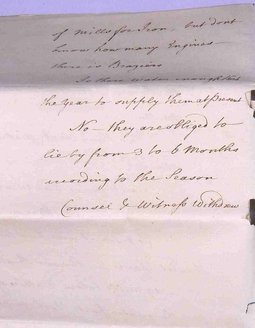 of Mills for Iron, but dont
know how many Engines
there is Braziers
Is there water enough thro
the Year to supply them at Present
No – they are obliged to
lie by from 3 to 6 Months
according to the Season
Counsel & Witness Withdrew